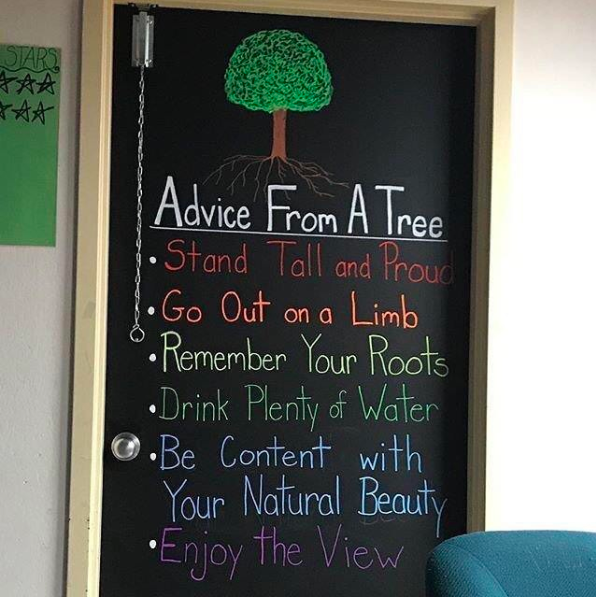 STARS
Advice From A Tree
• Stand Tall and Proud
• Go Out on a Limb
• Remember Your Roots
• Drink Plenty of Water
• Be Content with
Your Natural Beauty
• Enjoy the View